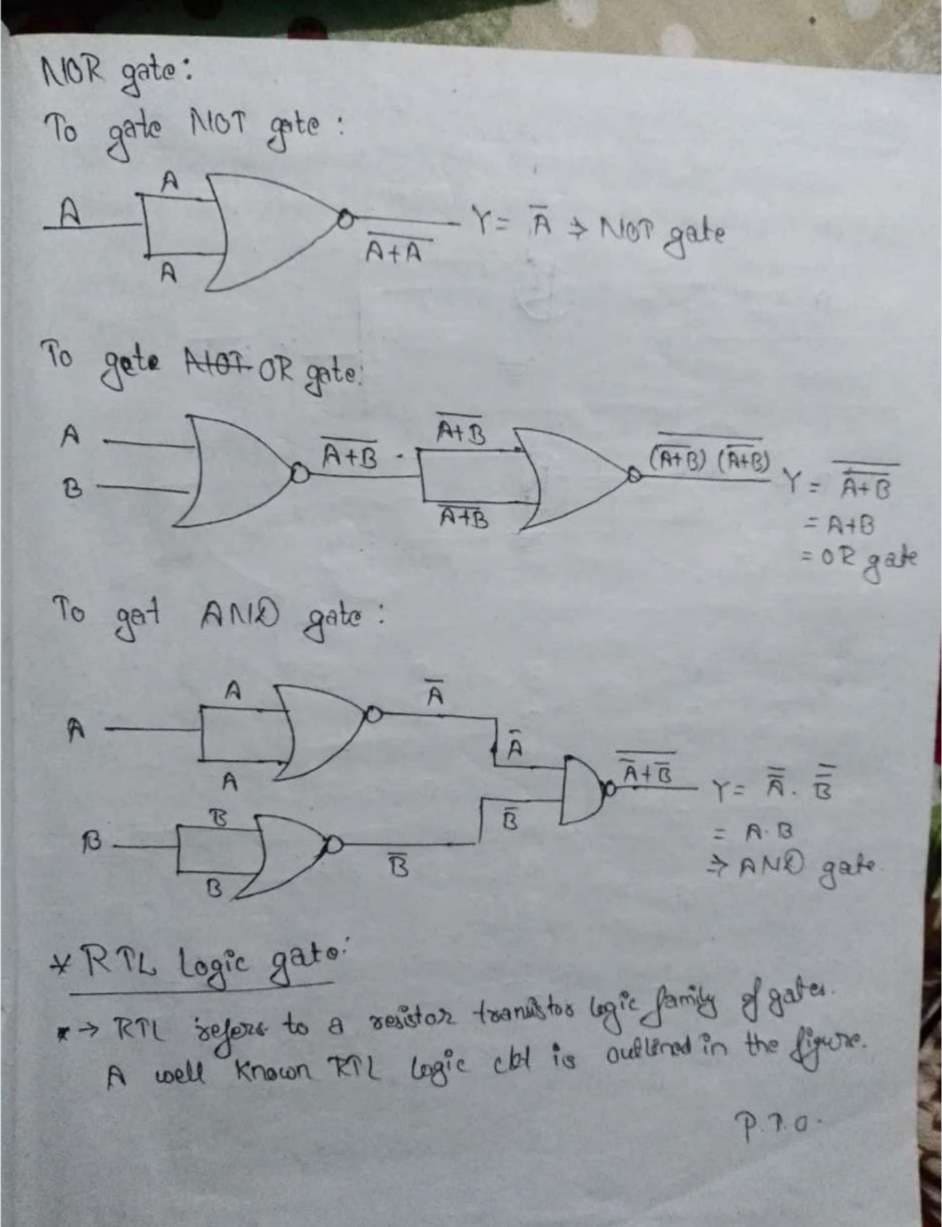 NOR gate:
To gate NOT gate :
A
A
A
A̅+̅A̅
Y = A̅ ⇒ NOT gate
To gate NOT OR gate:
A
B
A̅+̅B̅
A̅+̅B̅
A̅+̅B̅
(A̅+̅B̅) (A̅+̅B̅)
Y = A̿+̿B̿
= A+B
= OR gate
To get AND gate :
A
A
A
A̅
A̅
B
B
B
B̅
B̅
A̿+̅B̿
Y = A̿ . B̿
= A.B
⇒ AND gate.
* RTL Logic gate:
* → RTL refers to a resistor transistor logic family of gates.
A well known RTL logic ckt is outlined in the figure.
P.T.O.